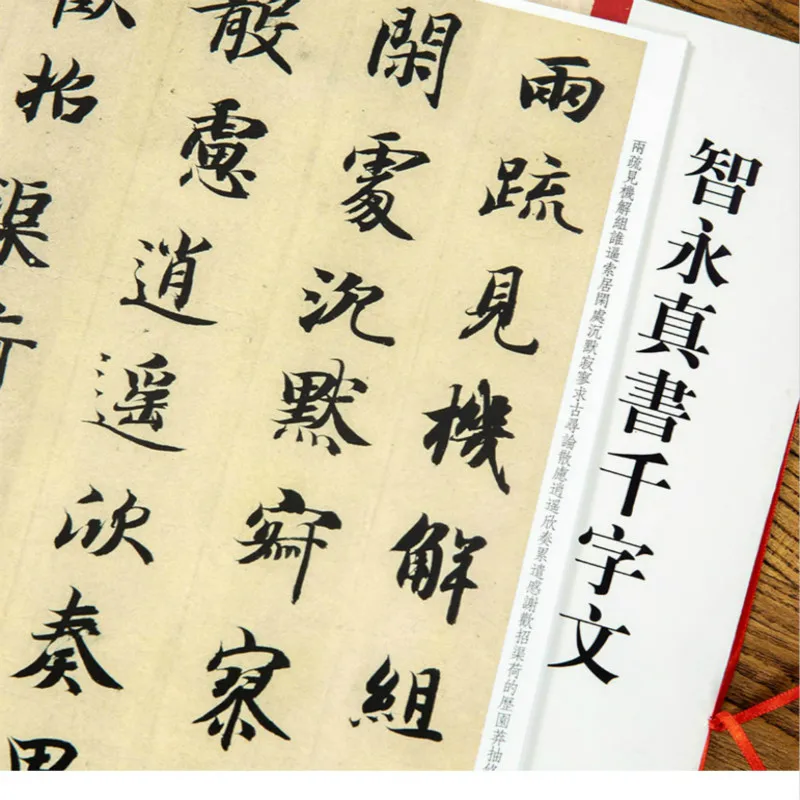 智永真書千字文
兩疏見機解組誰逼索居閑處沉默寂寥求古尋論散慮逍遥欣奏累遣慼謝歡招渠荷的歷園莽抽
兩疏見機解組
閑處沉默寂寥
散慮逍遥欣奏累
歡招渠